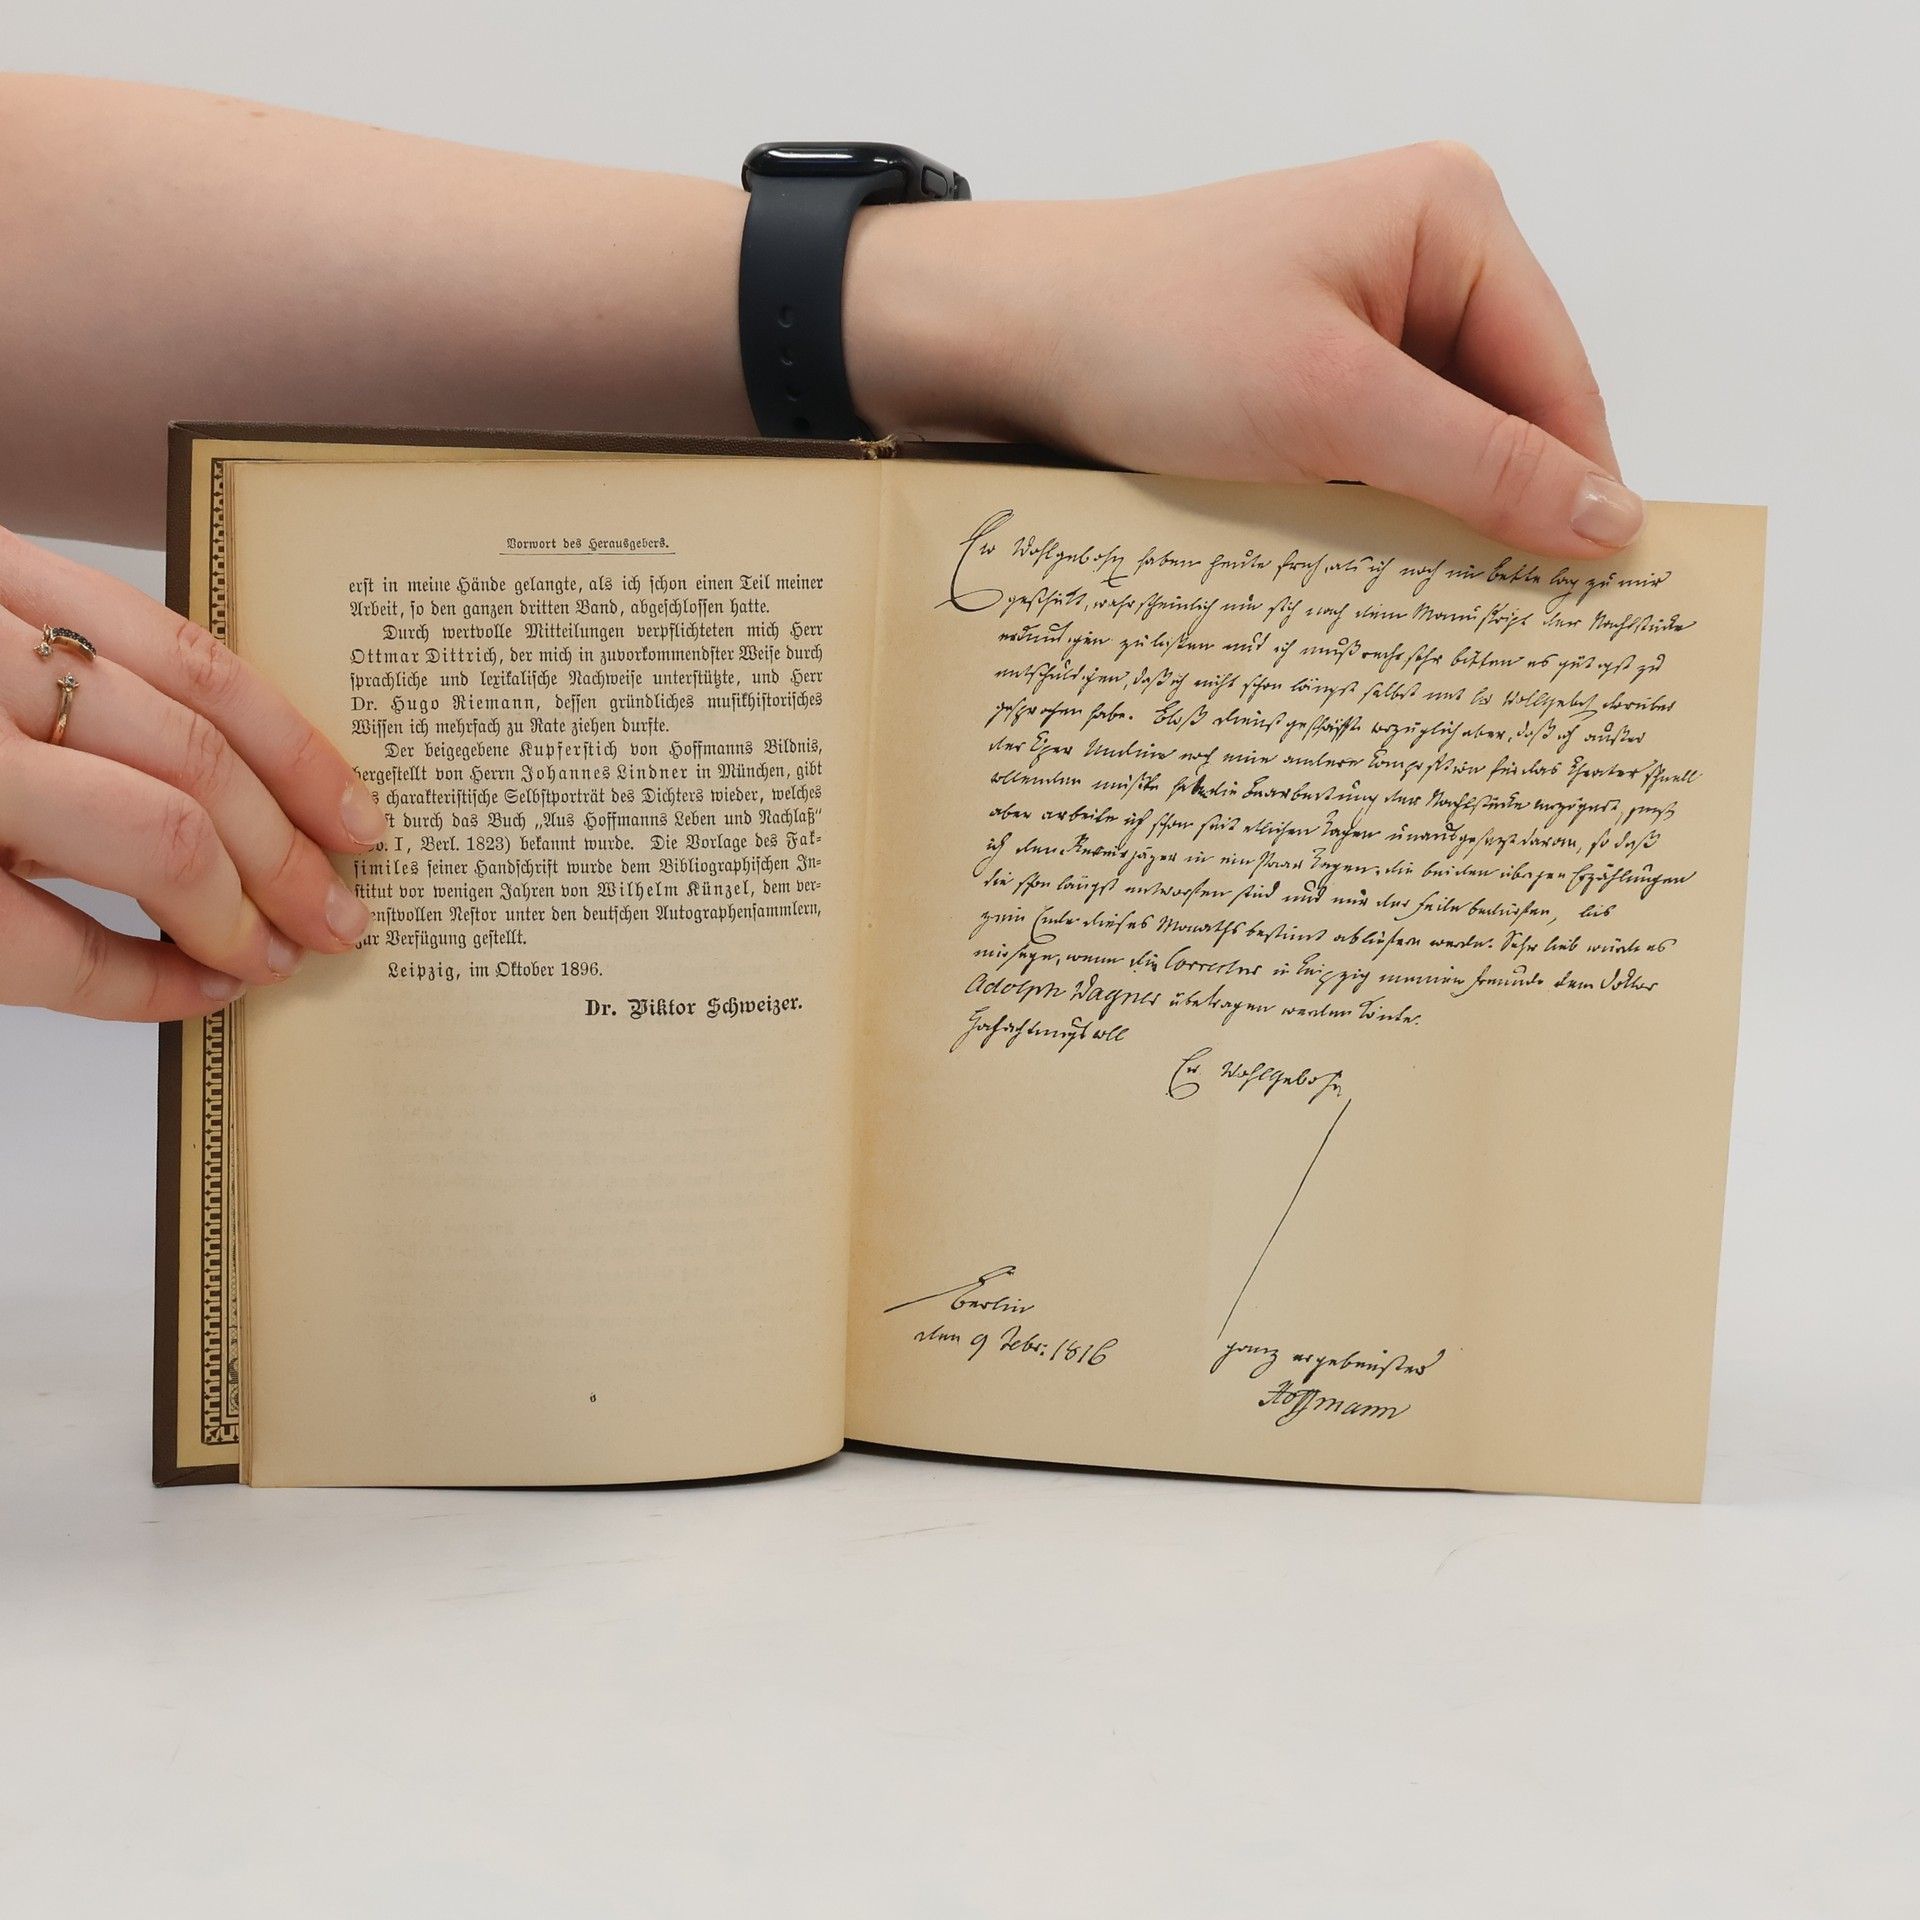 Vorwort des Herausgebers.
erst in meine Hände gelangte, als ich schon einen Teil meiner
Arbeit, so den ganzen dritten Band, abgeschlossen hatte.
Durch wertvolle Mitteilungen verpflichteten mich Herr
Ottmar Dittrich, der mich in zuvorkommendster Weise durch
sprachliche und lexikalische Nachweise unterstützte, und Herr
Dr. Hugo Riemann, dessen gründliches musikhistorisches
Wissen ich mehrfach zu Rate ziehen durfte.
Der beigegebene Kupferstich von Hoffmanns Bildnis,
hergestellt von Herrn Johannes Lindner in München, gibt
charakteristische Selbstporträt des Dichters wieder, welches
durch das Buch „Aus Hoffmanns Leben und Nachlaß“
I, Berl. 1823) bekannt wurde. Die Vorlage des Fak-
similes seiner Handschrift wurde dem Bibliographischen In-
stitut vor wenigen Jahren von Wilhelm Künzel, dem ver-
enstvollen Nestor unter den deutschen Autographensammlern,
zur Verfügung gestellt.
Leipzig, im Oktober 1896.
Dr. Viktor Schweizer.
ö
Ew Wohlgebohrn haben heute früh, als ich noch im Bette lag zu mir
geschickt, wahrscheinlich um sich nach dem Manuskript der Nachtstücke
erkundigen zu lassen und ich muß recht sehr bitten es gütigst zu
entschuldigen, daß ich nicht schon längst selbst mit Ew Wohlgeb darüber
gesprochen habe. Bloß Dienstgeschäffte vorzüglich aber, daß ich außer
der Oper Undine noch eine andere Composition für das Theater schnell
vollenden mußte hat die Bearbeitung der Nachtstücke verzögert, jezt
aber arbeite ich schon seit etlichen Tagen unausgesezt daran, so daß
ich den Revierjäger in ein Paar Tagen, die beiden übrigen Erzählungen
die schon längst entworfen sind und nur der Feile bedürfen, bis
zum Ende dieses Monaths bestimt abliefern werde. Sehr lieb würde es
mir seyn, wenn die Correctur in Leipzig meinem Freunde dem Doktor
Adolph Wagner übertragen werden könte.
Hochachtungsvoll
Ew Wohlgebohrn
Berlin
den 9 Febr: 1816
ganz ergebenster
Hoffmann